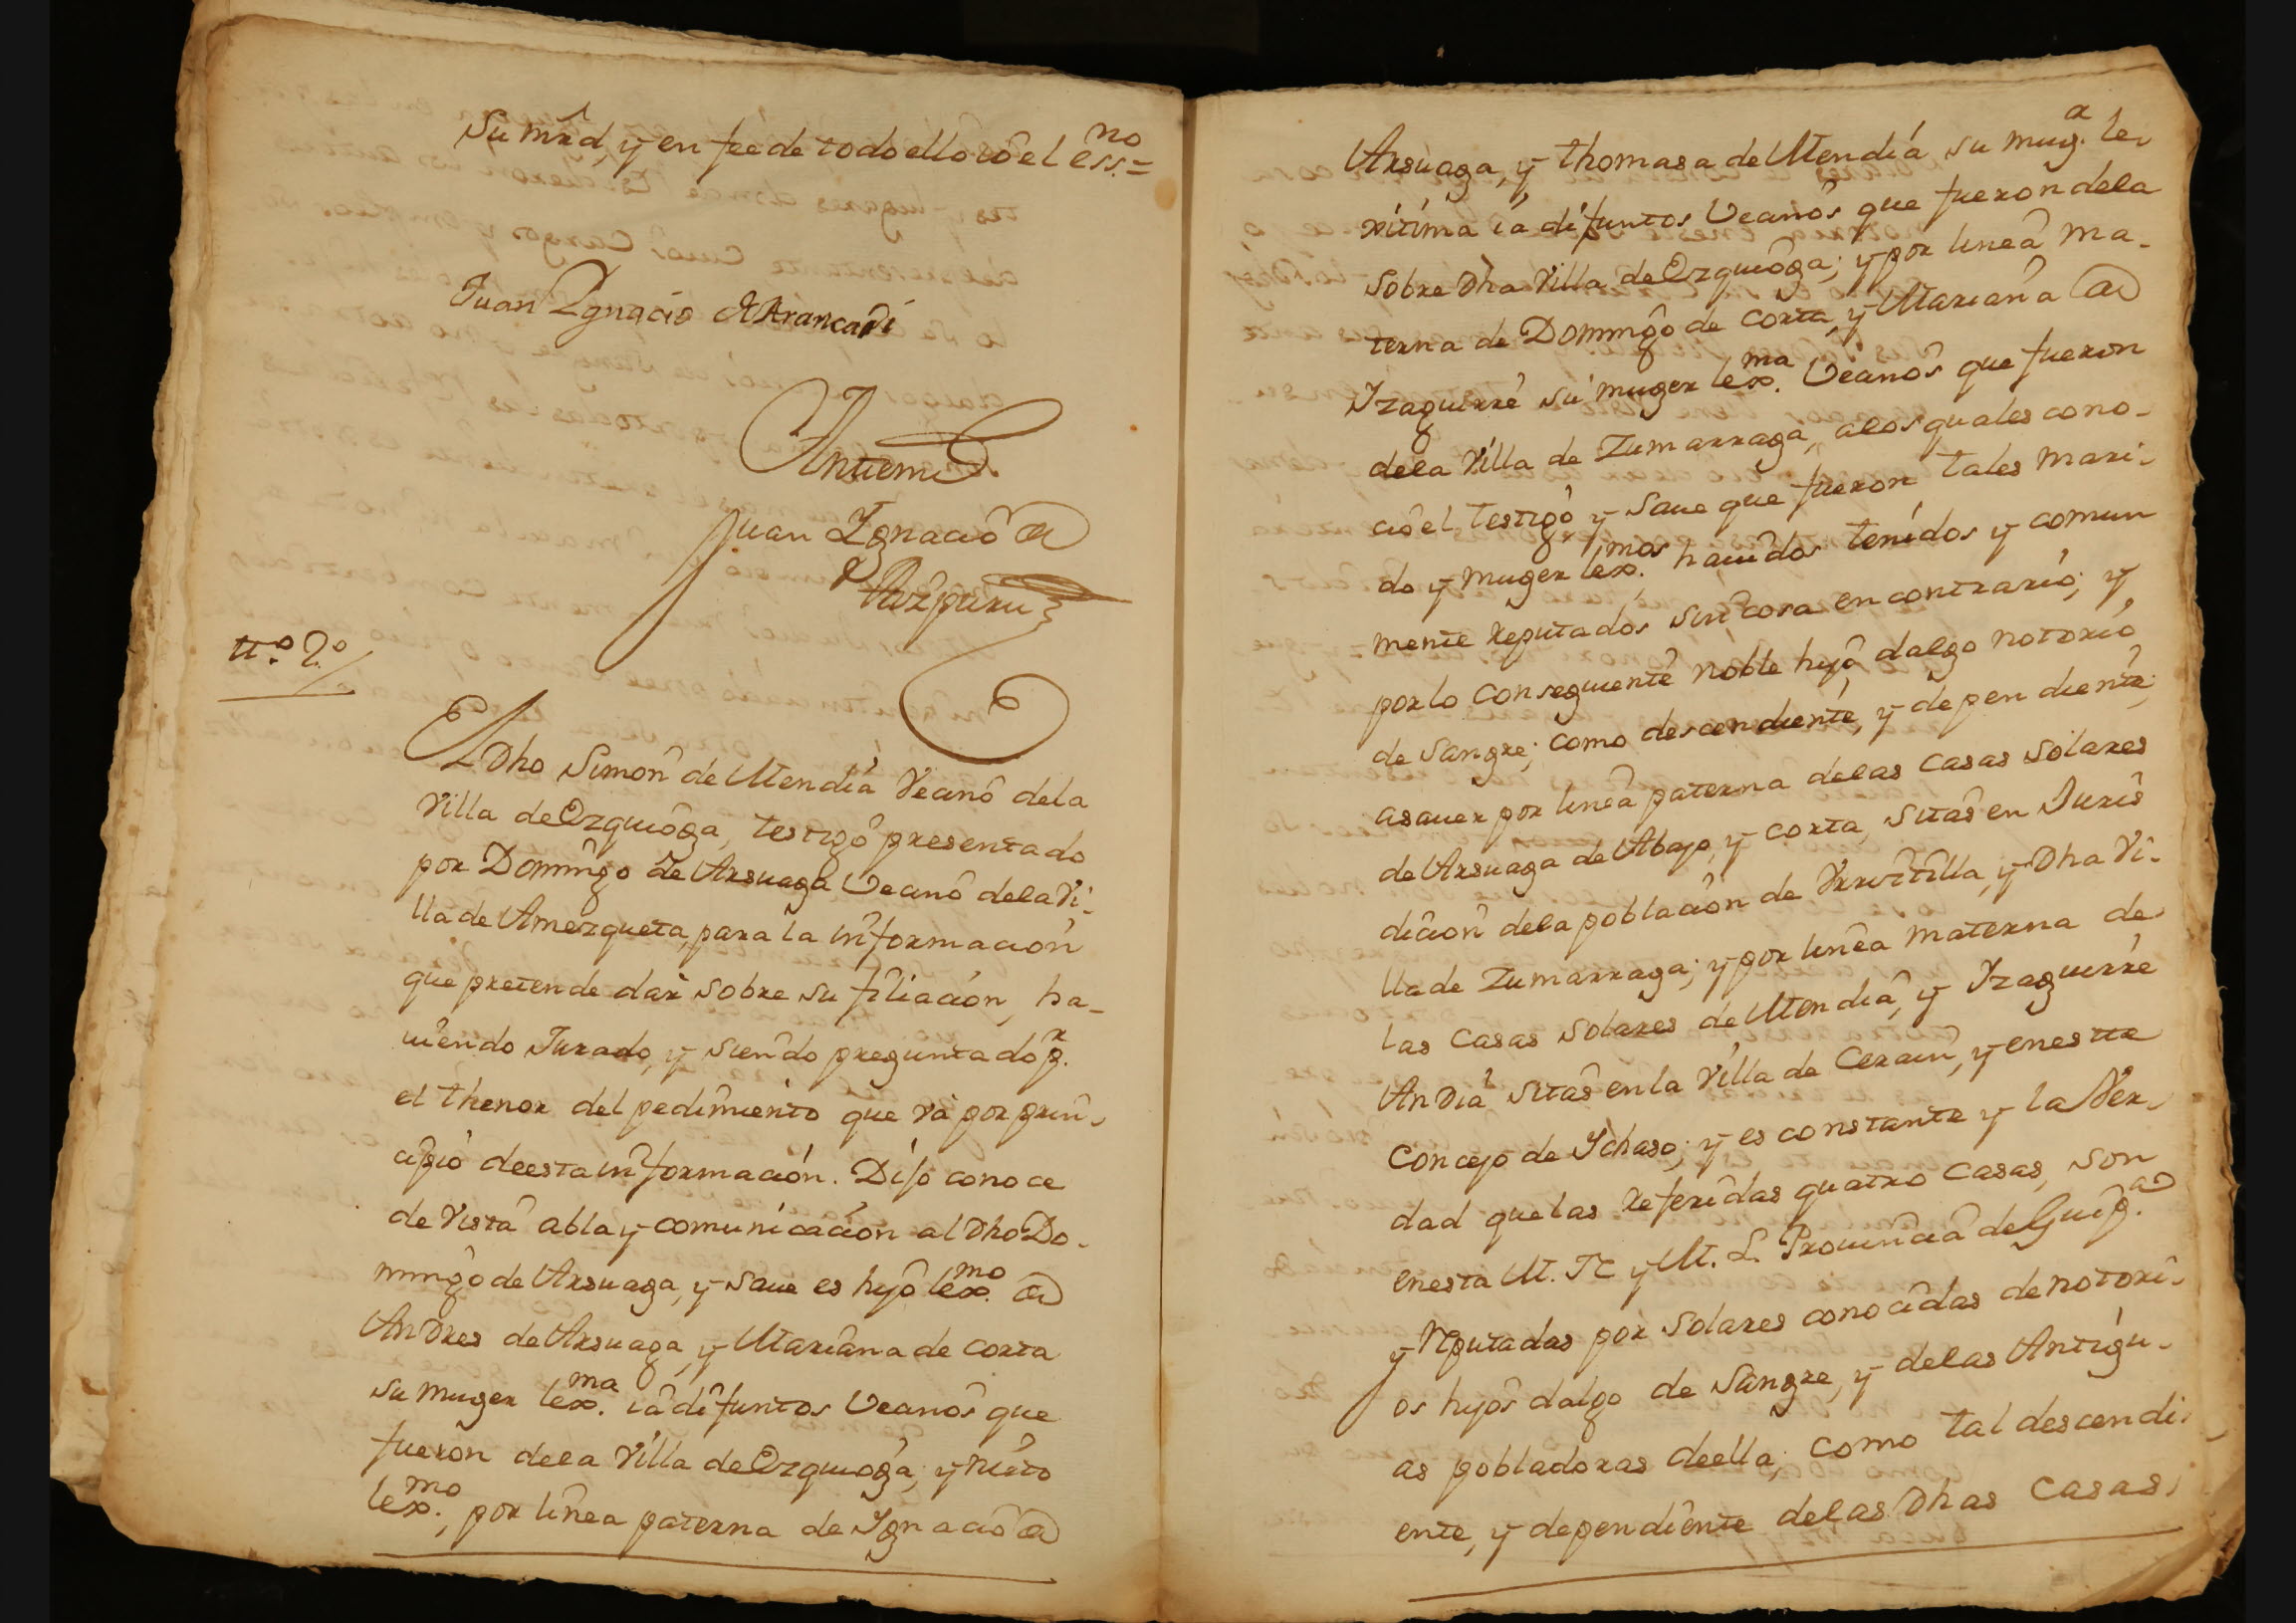 Su mrd, y en feé de todo ello io el essno=
Juan Ygnacio de Arancadi
Antemi
Juan Ygnacio de
Azpuru
tt.º 2.º
El Dho Simon de Mendia Vecino de la
Villa de Ezquioga, testigo presentado
por Domingo de Arsuaga Vecino de la Vi-
lla de Amezqueta, para la informacion
que pretende dar sobre su filiación, ha-
uiendo Jurado, y siendo preguntado pr.
el thenor del pedimiento que và por prin-
cipio de esta informacion. Dijo conoce
de vista abla y comunicacion al Dho Do-
mingo de Arsuaga, y saue es hijo lexmo. de
Andres de Arsuaga, y Mariana de Corta
su muger lexma. ia difuntos Vecinos que
fueron de la Villa de Ezquioga; y nieto
lexmo., por linea paterna de Ygnacio de
Arsuaga, y thomasa de Mendia su muga. le-
xitima ia difuntos Vecinos que fueron de la
sobre Dha Villa de Ezquioga; y por linea ma-
terna de Domingo de Corta, y Mariana de
Yzaguirre su muger lexma. Vecinos que fueron
de la Villa de Zumarraga, a los quales cono-
cio el testigo y saue que fueron tales mari-
do y muger lexmos. hauidos tenidos y comun
mente reputados sin cosa en contrario; y
por lo conseguiente noble hijo dalgo notorio
de sangre; como descendiente, y dependiente
asauer por linea paterna de las casas solares
de Arsuaga de Abajo, y Corta, sitas en Juris
dicion de la poblacion de Vrretilla, y Dha Vi-
lla de Zumarraga; y por linea materna de
las casas solares de Mendia, y Yzaguirre
Andia sitas en la Villa de Cerain, y en este
Concejo de Ychaso; y es constante y la Ver-
dad que las referidas quatro casas, son
en esta M. N. y M. L. Prouincia de Guipa.
y Reputadas por solares conocidas de notori-
os hijos dalgo de sangre, y de las Antigu-
as pobladoras de ella; como tal descendi-
ente, y dependiente de las Dhas casas,